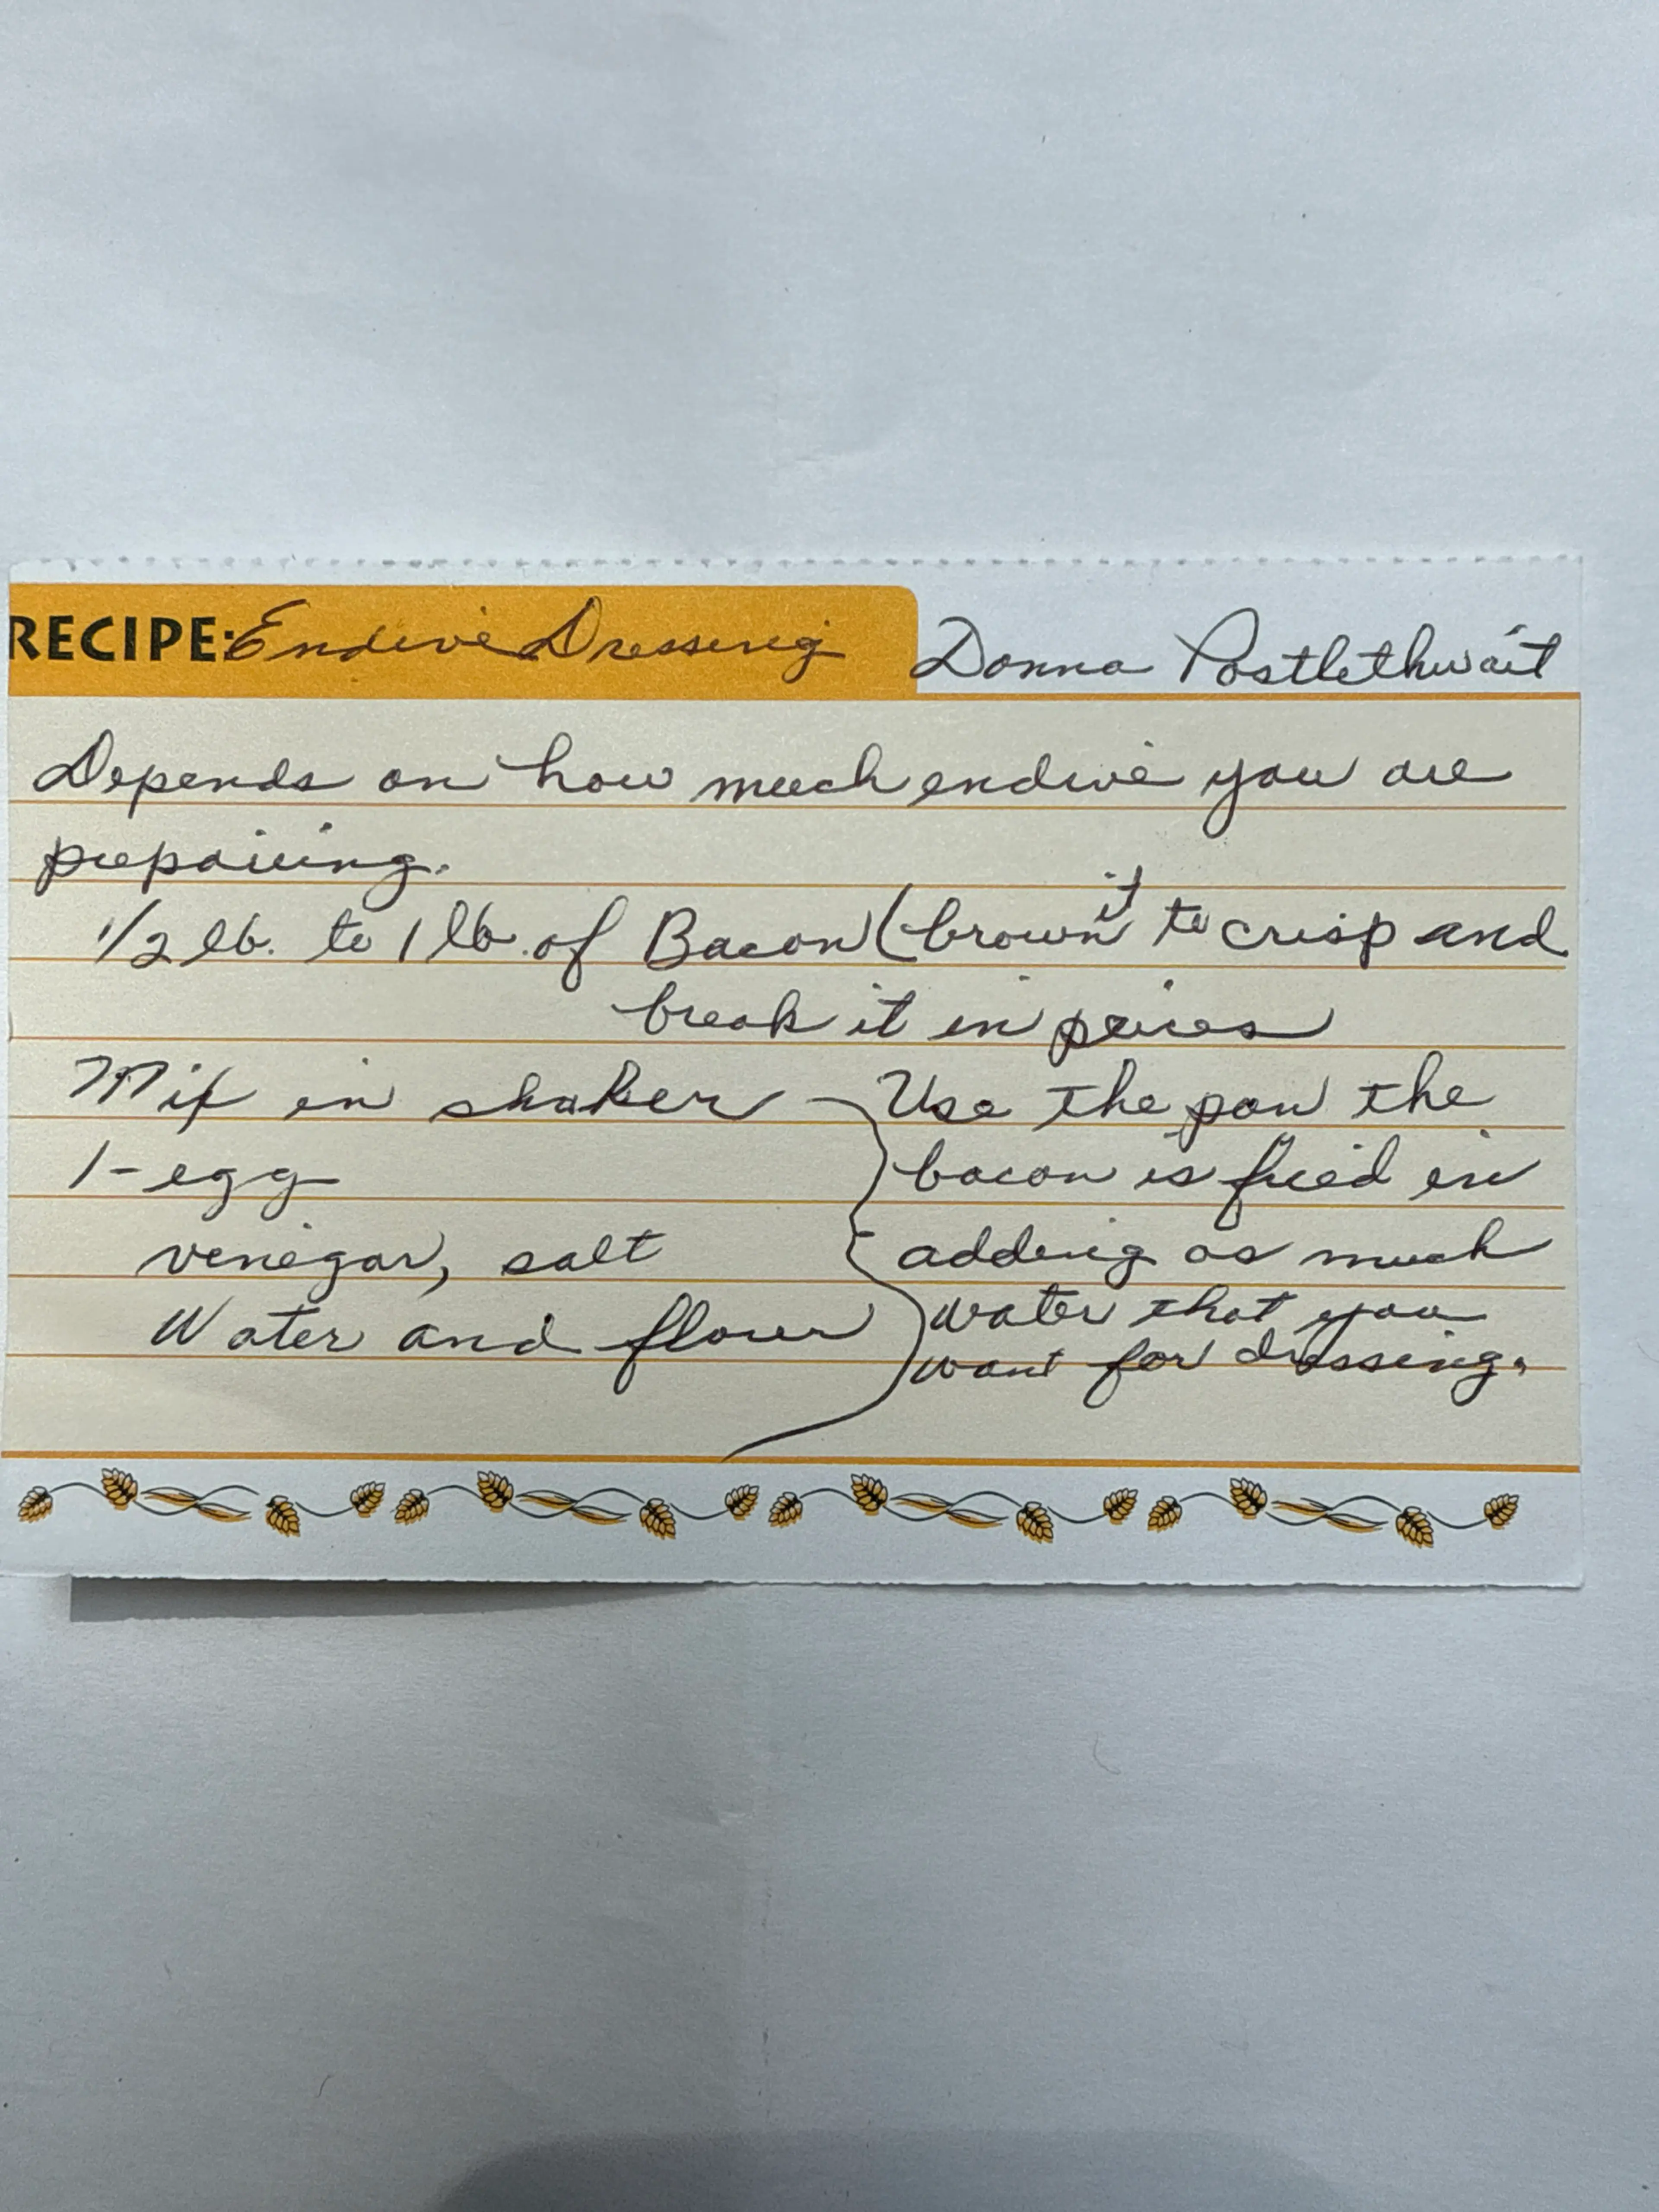 RECIPE: Endive Dressing Donna Postlethwait
Depends on how much endive you are
prepairing.
1/2 lb. to 1 lb. of Bacon (brown it to crisp and
break it in peices)
Mix in shaker
1-egg
venegar, salt
Water and flour
Use the pan the
bacon is fried in
adding as much
water that you
want for dressing.